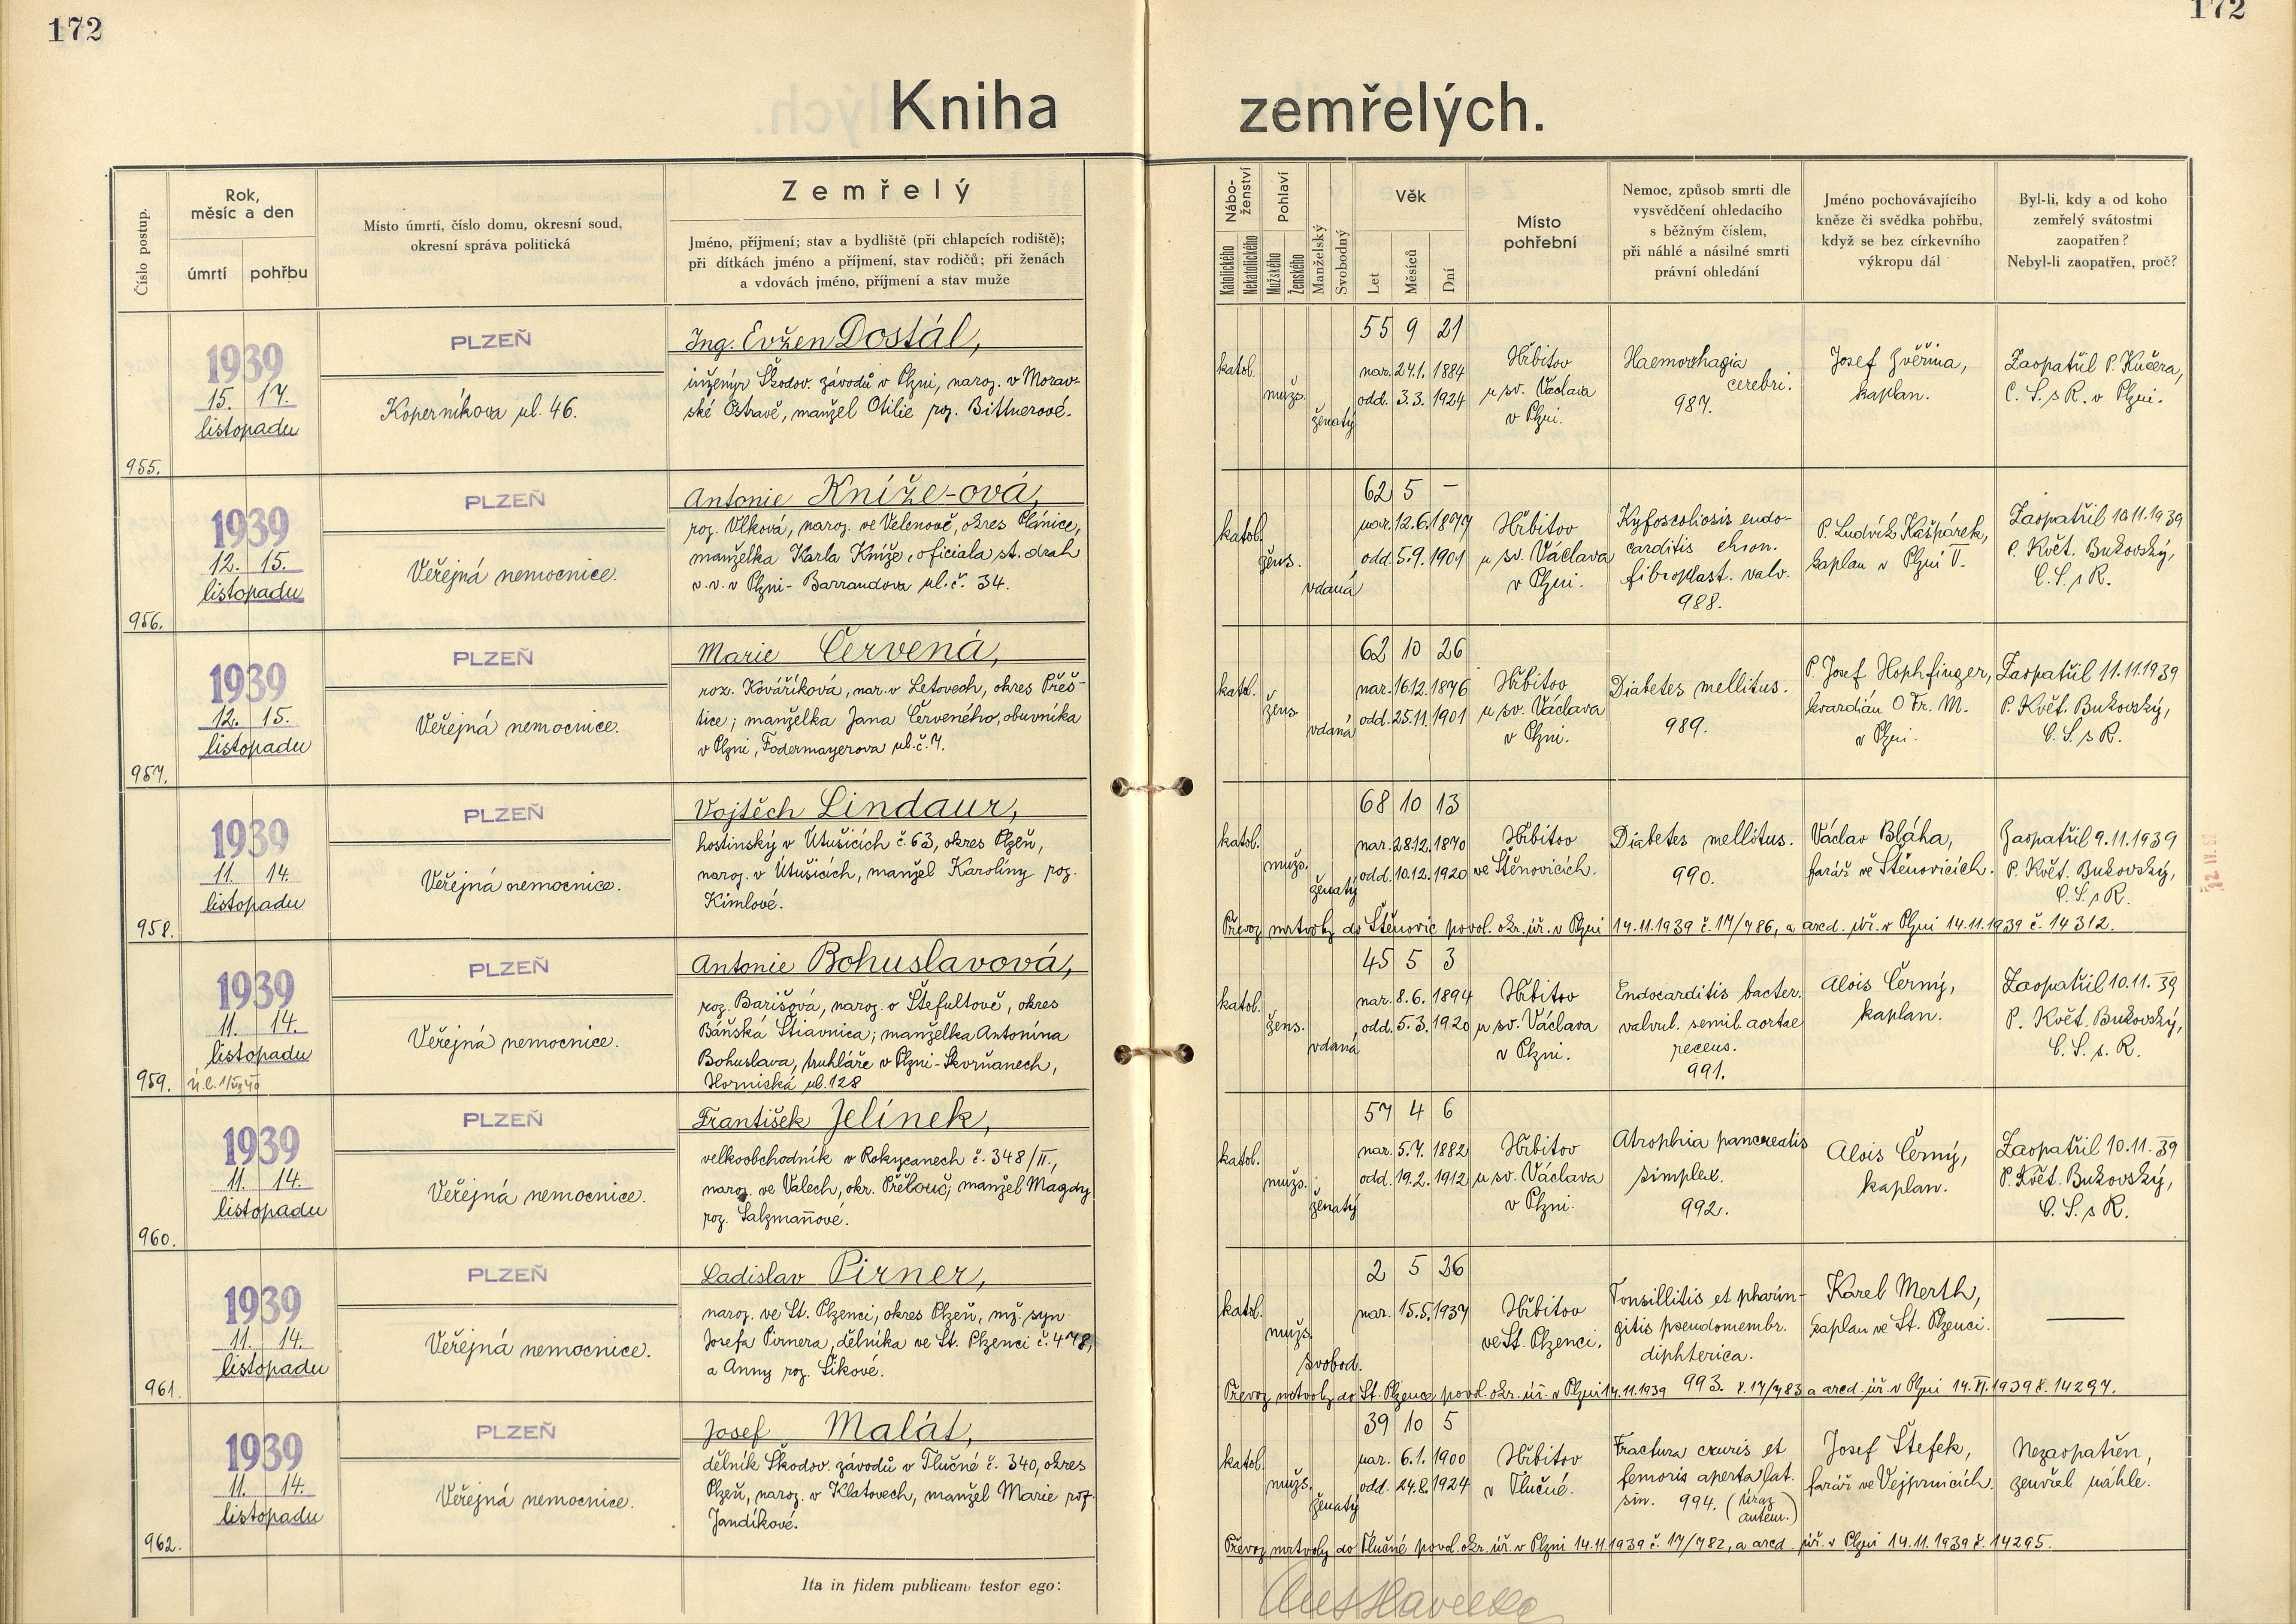 172
172
Kniha zemřelých.
Číslo postup.
Rok,
měsíc a den
úmrtí
pohřbu
Místo úmrtí, číslo domu, okresní soud,
okresní správa politická
Zemřelý
Jméno, příjmení; stav a bydliště (při chlapcích rodiště);
při dítkách jméno a příjmení, stav rodičů; při ženách
a vdovách jméno, příjmení a stav muže
Nábo-
ženství
Katolického
Nekatolického
Pohlaví
Mužského
Ženského
Manželský
Svobodný
Věk
Let
Měsíců
Dní
Místo
pohřební
Nemoc, způsob smrti dle
vysvědčení ohledacího
s běžným číslem,
při náhlé a násilné smrti
právní ohledání
Jméno pochovávajícího
kněze či svědka pohřbu,
když se bez církevního
výkropu dál
Byl-li, kdy a od koho
zemřelý svátostmi
zaopatřen?
Nebyl-li zaopatřen, proč?
955.
1939
15. 17.
listopadu
PLZEŇ
Koperníkova ul. 46.
Ing. Evžen Dostál,
inženýr Škodov. závodů v Plzni, naroz. v Morav-
ské Ostravě, manžel Otilie roz. Bittnerové.
katol.
mužs.
ženatý
55 9 21
nar. 24.1. 1884
odd. 3.3. 1924
Hřbitov
u sv. Václava
v Plzni.
Haemorrhagia
cerebri.
987.
Josef Zvěřina,
kaplan.
Zaopatřil P. Kučera,
C. S. s R. v Plzni.
956.
1939
12. 15.
listopadu
PLZEŇ
Veřejná nemocnice.
Antonie Kníže-ová,
roz. Vlková, naroz. ve Velenově, okres Plánice,
manželka Karla Kníže, oficiala st. drah
v.v. v Plzni - Barrandova ul. č. 34.
katol.
žens.
vdaná
62 5 –
nar. 12.6. 1877
odd. 5.9. 1901
Hřbitov
u sv. Václava
v Plzni.
Kyfoscoliosis endo-
carditis chron.
fibroplast. valv.
988.
P. Ludvík Kašpárek,
kaplan v Plzni V.
Zaopatřil 10.11.1939
P. Květ. Bukovský,
C. S. s R.
957.
1939
12. 15.
listopadu
PLZEŇ
Veřejná nemocnice.
Marie Červená,
roz. Kováříková, nar. v Letovech, okres Přeš-
tice; manželka Jana Červeného, obuvníka
v Plzni, Fodermayerova ul. č. 7.
katol.
žens.
vdaná
62 10 26
nar. 16.12. 1876
odd. 25.11. 1901
Hřbitov
u sv. Václava
v Plzni.
Diabetes mellitus.
989.
P. Josef Hophfinger,
kvardián O Fr. M.
v Plzni.
Zaopatřil 11.11.1939
P. Květ. Bukovský,
C. S. s R.
958.
1939
11. 14.
listopadu
PLZEŇ
Veřejná nemocnice.
Vojtěch Lindaur,
hostinský v Útušicích č. 63, okres Plzeň,
naroz. v Útušicích, manžel Karoliny roz.
Kimlové.
katol.
mužs.
ženatý
68 10 13
nar. 28.12. 1870
odd. 10.12. 1920
Hřbitov
ve Štěnovicích.
Diabetes mellitus.
990.
Václav Bláha,
farář ve Štěnovicích.
Zaopatřil 9.11.1939
P. Květ. Bukovský,
C. S. s R.
Převoz mrtvoly do Štěnovic povol. okr. úř. v Plzni 14.11.1939 č. 17/786, a arcd. úř. v Plzni 14.11.1939 č. 14312.
959.
1939
11. 14.
listopadu
PLZEŇ
Veřejná nemocnice.
Antonie Bohuslavová,
roz. Barišová, naroz. v Štefultově, okres
Báňská Štiavnica; manželka Antonína
Bohuslava, truhláře v Plzni-Skvrňanech,
Hornická ul. 128
katol.
žens.
vdaná
45 5 3
nar. 8.6. 1894
odd. 5.3. 1920
Hřbitov
u sv. Václava
v Plzni.
Endocarditis bacter.
valvul. semil. aortae
recens.
991.
Alois Černý,
kaplan.
Zaopatřil 10.11.39
P. Květ. Bukovský,
C. S. s. R.
960.
1939
11. 14.
listopadu
PLZEŇ
Veřejná nemocnice.
František Jelínek,
velkoobchodník v Rokycanech č. 348/II.,
naroz. ve Valech, okr. Přelouč; manžel Magdy
roz. Salzmannové.
katol.
mužs.
ženatý
57 4 6
nar. 5.7. 1882
odd. 19.2. 1912
Hřbitov
u sv. Václava
v Plzni.
Atrophia pancreatis
simplex.
992.
Alois Černý,
kaplan.
Zaopatřil 10.11.39
P. Květ. Bukovský,
C. S. s R.
961.
1939
11. 14.
listopadu
PLZEŇ
Veřejná nemocnice.
Ladislav Pirner,
naroz. ve St. Plzenci, okres Plzeň, mž. syn
Josefa Pirnera, dělníka ve St. Plzenci č. 478,
a Anny roz. Šikové.
katol.
mužs.
svobod.
2 5 26
nar. 15.5. 1937
Hřbitov
ve St. Plzenci.
Tonsillitis et pharin-
gitis pseudomembr.
diphterica.
993.
Karel Merth,
kaplan ve St. Plzenci.
—
Převoz mrtvoly do St. Plzence povol. okr. úř. v Plzni 14.11.1939 č. 17/783 a arcd. úř. v Plzni 14.XI.1939 č. 14297.
962.
1939
11. 14.
listopadu
PLZEŇ
Veřejná nemocnice.
Josef Malát,
dělník Škodov. závodů v Tlučné č. 340, okres
Plzeň, naroz. v Klatovech, manžel Marie roz.
Jandíkové.
katol.
mužs.
ženatý
39 10 5
nar. 6.1. 1900
odd. 24.8. 1924
Hřbitov
v Tlučné.
Fractura cruris et
femoris aperta lat.
sin. 994. (úraz
autem.)
Josef Štefek,
farář ve Vejprnicích.
Nezaopatřen,
zemřel náhle.
Převoz mrtvoly do Tlučné povol. okr. úř. v Plzni 14.11.1939 č. 17/782, a arcd. úř. v Plzni 14.11.1939 č. 14295.
Ita in fidem publicam testor ego: